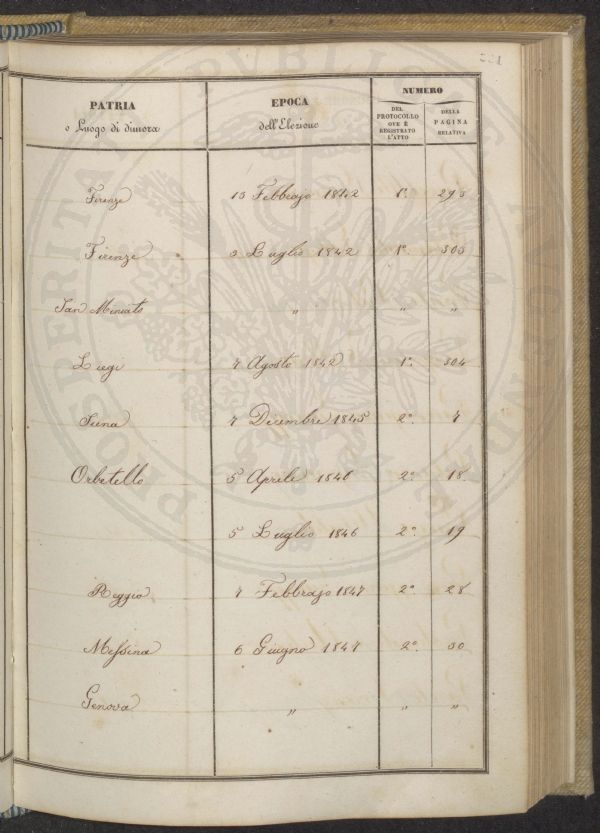 PATRIA
o Luogo di dimora
EPOCA
dell'Elezione
NUMERO
DEL
PROTOCOLLO
OVE È
REGISTRATO
L'ATTO
DELLA
PAGINA
RELATIVA
Firenze 13 Febbrajo 1842 1º. 295
Firenze 3 Luglio 1842 1º. 303
San Miniato " " "
Liegi 7 Agosto 1842 1º. 304
Siena 7 Dicembre 1845 2º. 7
Orbetello 5 Aprile 1846 2º. 18
5 Luglio 1846 2º. 19
Reggio 7 Febbrajo 1847 2º. 28
Messina 6 Giugno 1847 2º. 30
Genova " " "